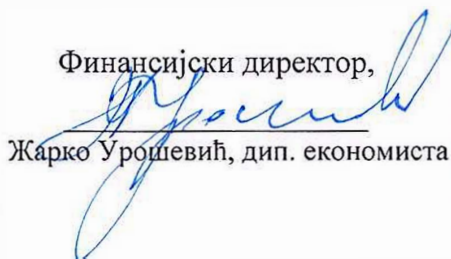 Финансијски директор,
Жарко Урошевић, дип. економиста